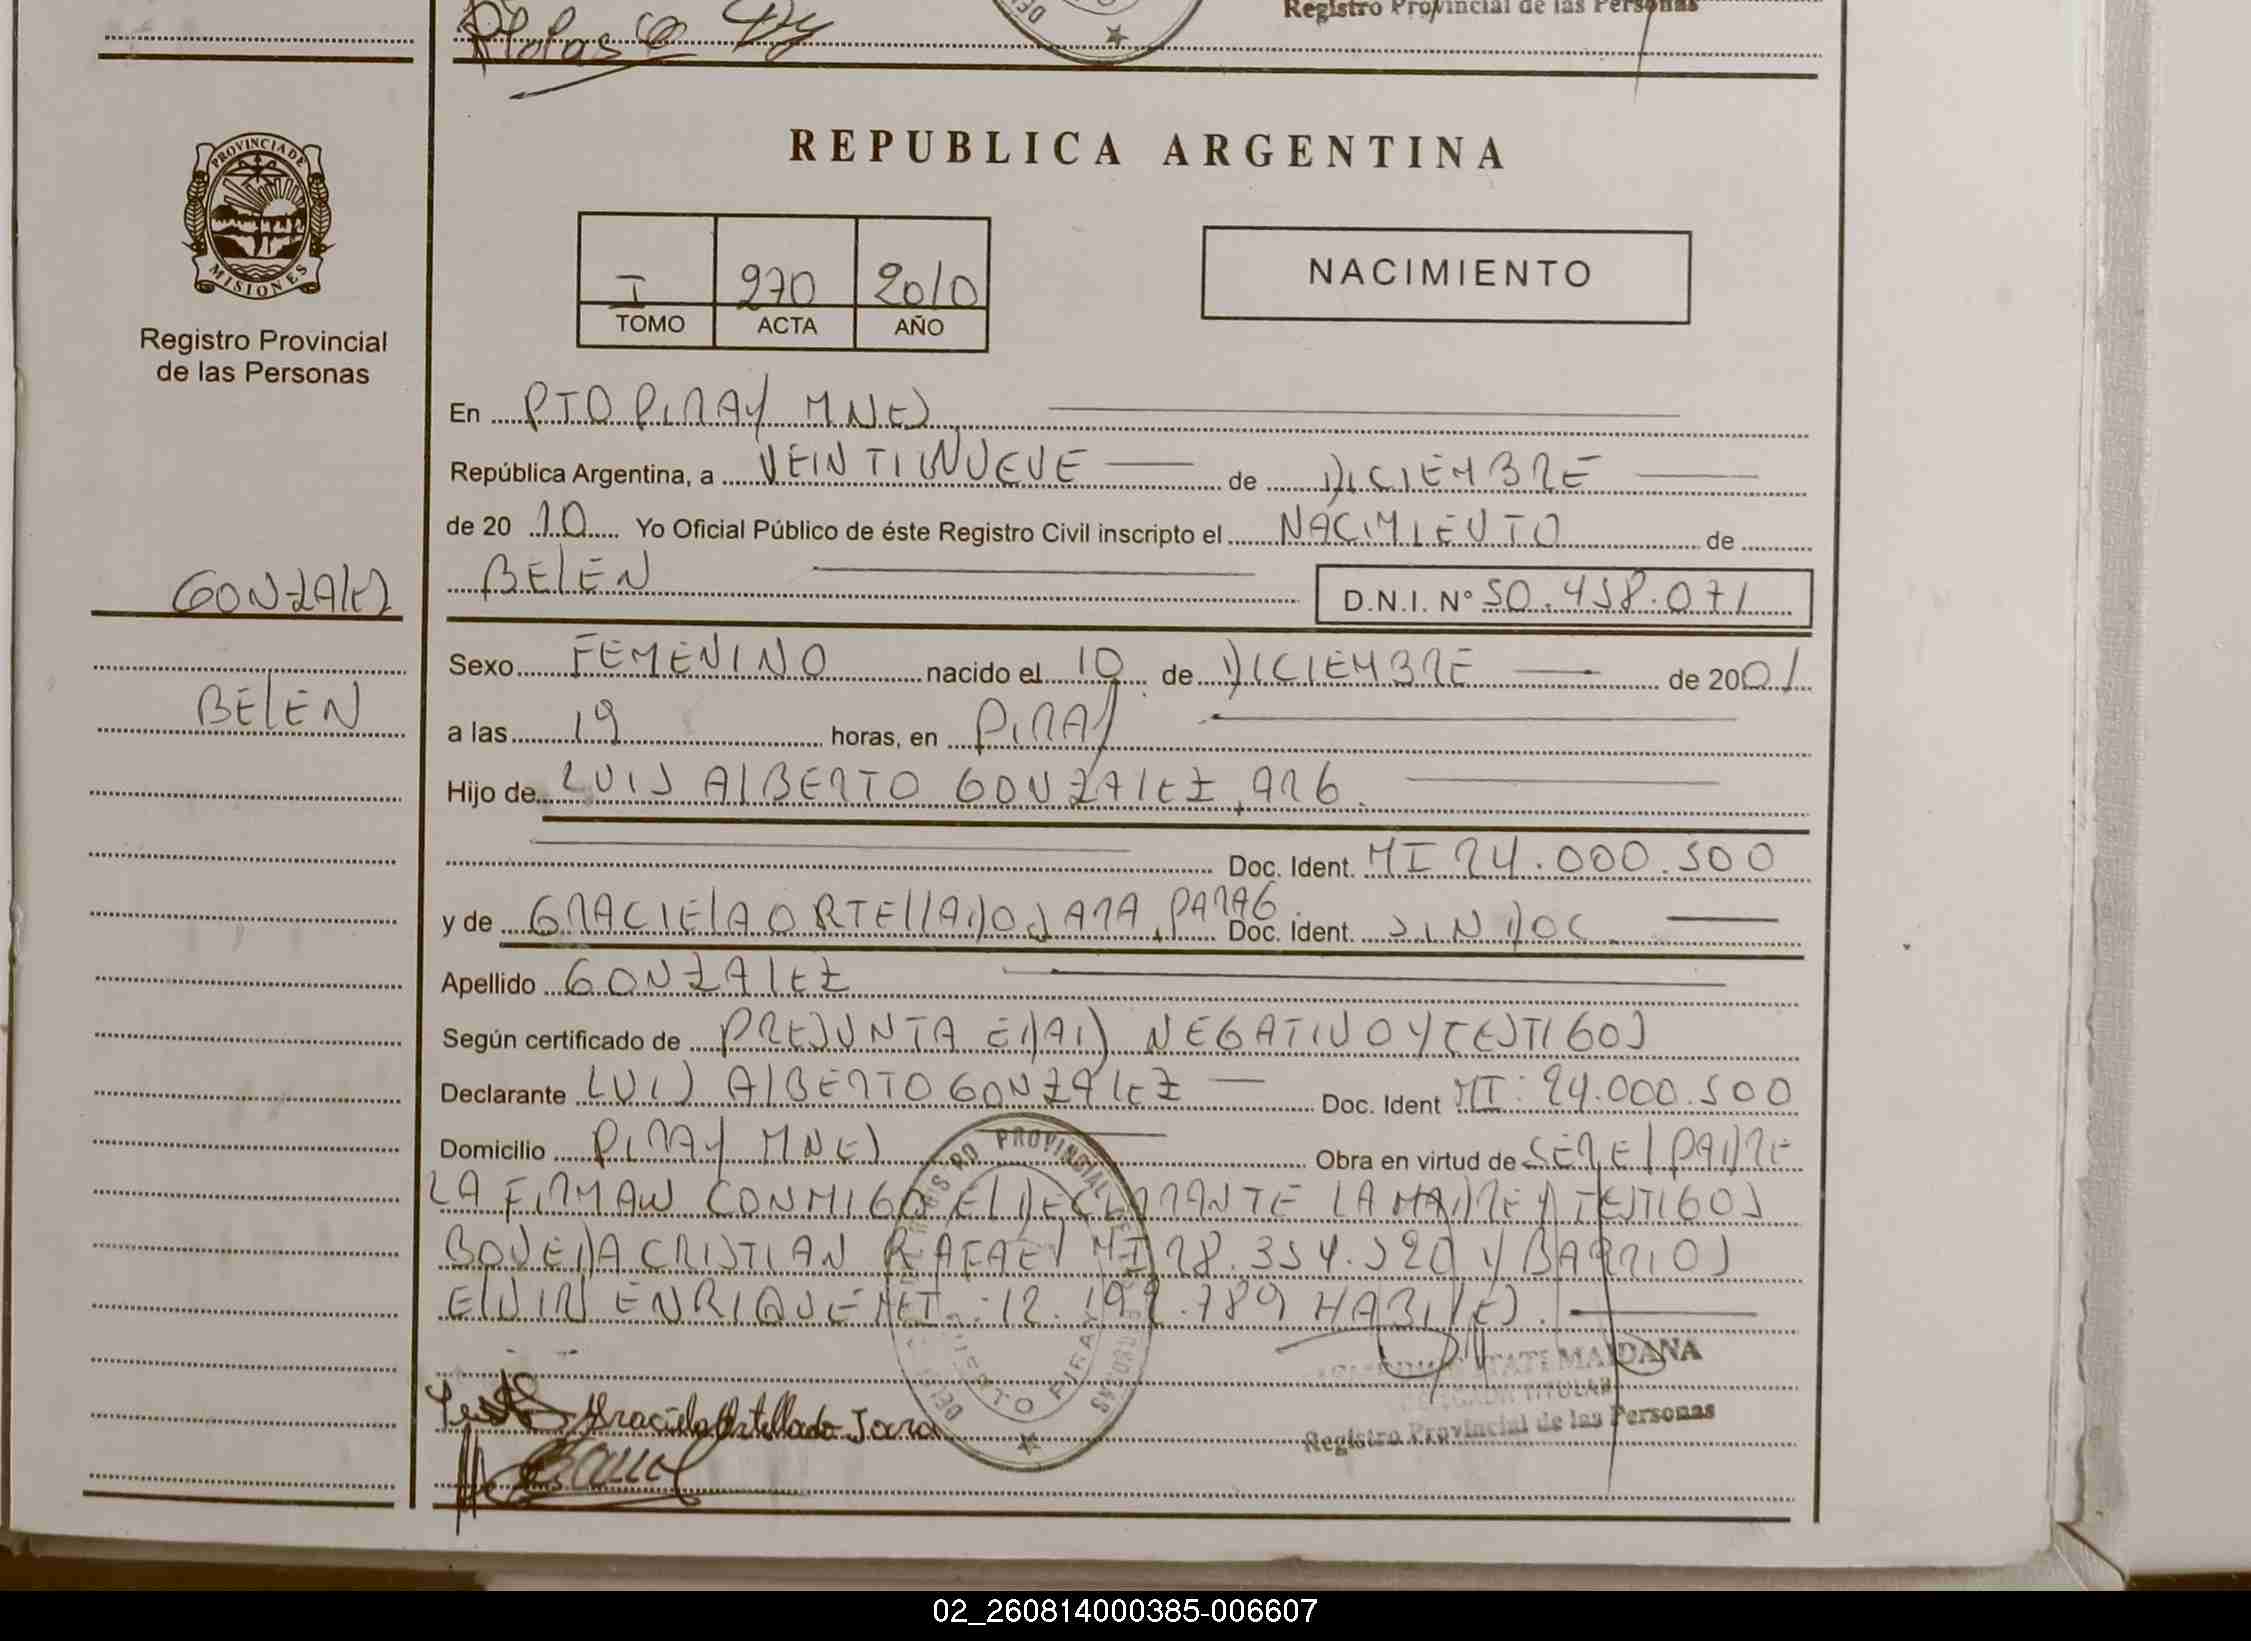 Registro Provincial de las Personas
REPUBLICA ARGENTINA
PROVINCIA DE
MISIONES
Registro Provincial
de las Personas
I 270 2010
TOMO ACTA AÑO
NACIMIENTO
En PTO PIRAY MNES
República Argentina, a VEINTINUEVE de DICIEMBRE
de 20 10 Yo Oficial Público de éste Registro Civil inscripto el NACIMIENTO de
GONZALEZ
BELEN D.N.I. N° 50.458.071
Sexo FEMENINO nacido el 10 de DICIEMBRE de 2001
BELEN
a las 19 horas, en PIRAY
Hijo de LUIS ALBERTO GONZALEZ, ARG.
Doc. Ident. MI 24.000.500
y de GRACIELA ORTELLADO JARA, PARAG. Doc. Ident. SIN DOC.
Apellido GONZALEZ
Según certificado de PRESUNTA EDAD NEGATIVO Y TESTIGOS
Declarante LUIS ALBERTO GONZALEZ Doc. Ident MI: 24.000.500
Domicilio PIRAY MNES Obra en virtud de SER EL PADRE
LA FIRMAN CONMIGO EL DECLARANTE LA MADRE Y TESTIGOS
BOVEDA CRISTIAN RAFAEL MI 28.354.520 Y BARRIOS
ENRIQUE 12.192.789 HABILES.
REGISTRO PROVINCIAL DE LAS PERSONAS
PUERTO PIRAY
MAIDANA
Graciela Ortellado Jara
Registro Provincial de las Personas
02_260814000385-006607